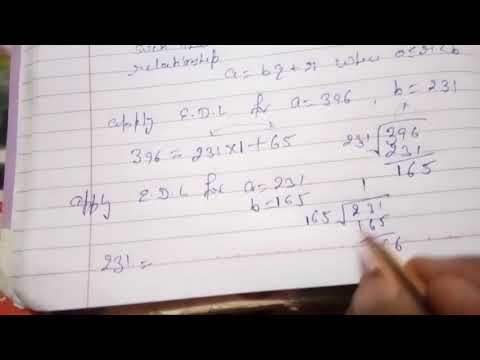 relationship
a = bq + r when 0≤r<b
apply E.D.L for a = 396, b = 231
396 = 231×1 + 165
1
231)396
231
165
apply E.D.L for a = 231
b = 165
1
165)231
165
66
231 =